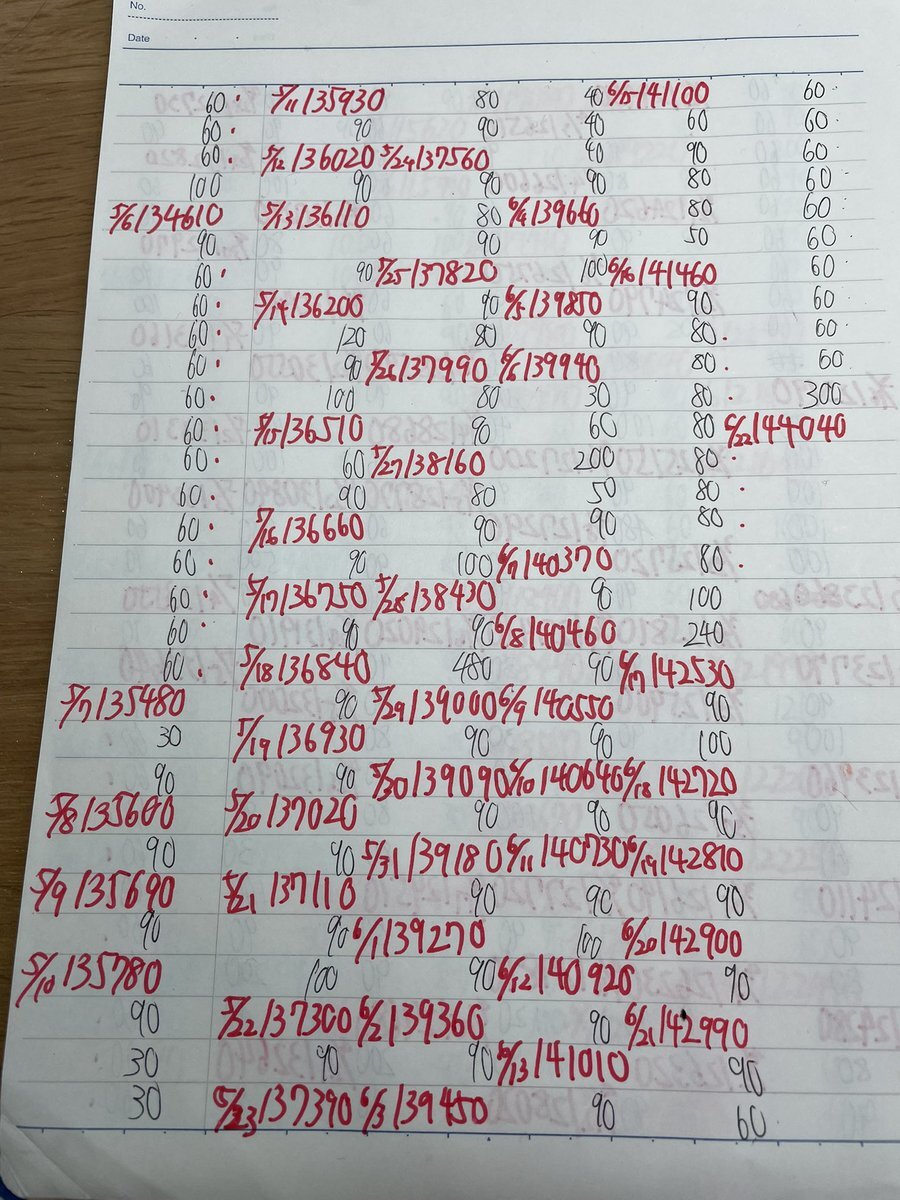 No.
Date
60·
60·
60·
100
5/6 134610
90
60·
60·
60·
60·
60·
60·
60·
60·
60·
60·
60·
60·
60·
5/7 135480
30
90
5/8 135600
90
5/9 135690
90
5/10 135780
90
30
30
5/11 135930
90
5/12 136020
90
5/13 136110
90
5/14 136200
120
90
100
5/15 136510
60
90
5/16 136660
90
5/17 136750
90
5/18 136840
90
5/19 136930
90
5/20 137020
90
5/21 137110
90
100
5/22 137300
90
5/23 137390
80
90
5/24 137560
90
80
90
5/25 137820
90
80
5/26 137990
80
90
5/27 138160
80
90
100
5/28 138430
90
480
5/29 139000
90
5/30 139090
90
5/31 139180
90
6/1 139270
90
6/2 139360
90
6/3 139450
40
40
40
90
6/4 139660
90
100
6/5 139850
90
6/6 139940
30
60
200
50
90
6/7 140370
90
6/8 140460
90
6/9 140550
90
6/10 140640
90
6/11 140730
90
100
6/12 140920
90
6/13 141010
90
6/15 141100
60
90
80
80
50
6/16 141460
90
80·
80·
80·
80
80·
80·
80·
80·
100
240
6/17 142530
90
100
6/18 142720
90
6/19 142810
90
6/20 142900
90
6/21 142990
90
60
60·
60·
60·
60·
60·
60·
60·
60·
60·
60
300
6/22 144040